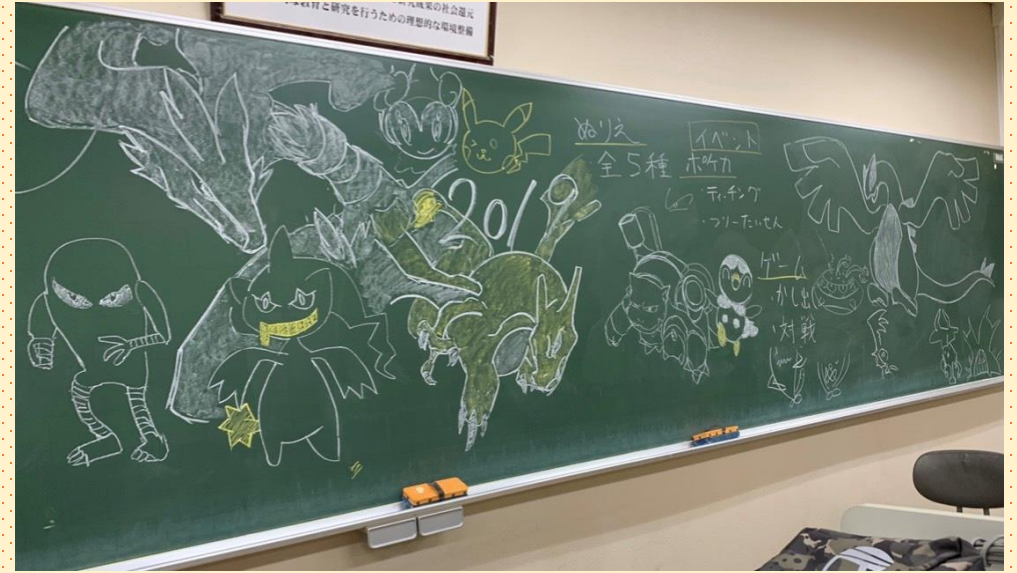 研究成果の社会還元
教育と研究を行うための理想的な環境整備
2019
ぬりえ
全5種
イベント
ポケカ
・ティーチング
・フリーたいせん
ゲーム
・かし出
・対戦